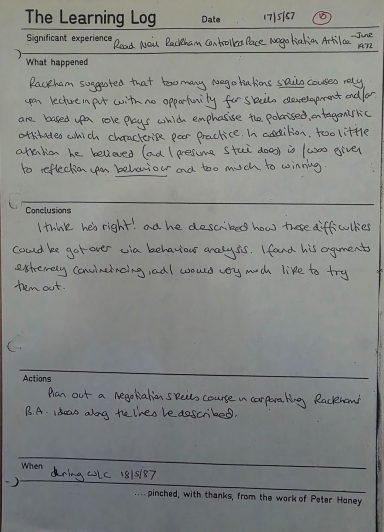 The Learning Log
Date 17/5/87 8
Significant experience Read Neil Rackham Controlled Pace Negotiation Article - June 1972
What happened
Rackham suggested that too many negotiations skills courses rely
upon lecture input with no opportunity for skills development and/or
are based upon role plays which emphasise the polarised, antagonistic
attitudes which characterise poor practice. In addition, too little
attention he believed (and I presume still does) is/was given
to reflection upon behaviour and too much to winning.
Conclusions
I think he's right! and he described how these difficulties
could be got over via behaviour analysis. I found his arguments
extremely convincing, and I would very much like to try
them out.
Actions
Plan out a negotiation skills course incorporating Rackham's
B.A. ideas along the lines he described.
When during w/c 18/5/87
.... pinched, with thanks, from the work of Peter Honey